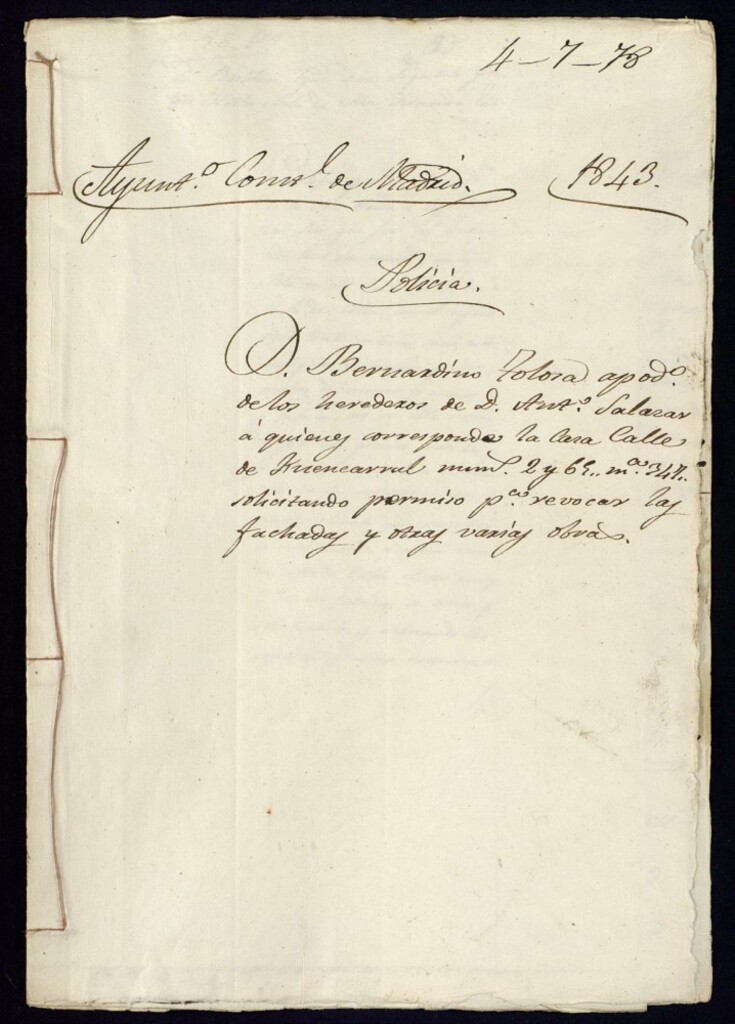 4-7-78
Ayunt.º Const.l de Madrid. 1843.
Policia.
D. Bernardino Tolosa apod.º
de los herederos de D. Ant.º Salazar
á quienes corresponde la Casa Calle
de Fuencarral num.s 2 y m.a 347.
solicitando permiso p.a revocar las
fachadas y otras varias obras.